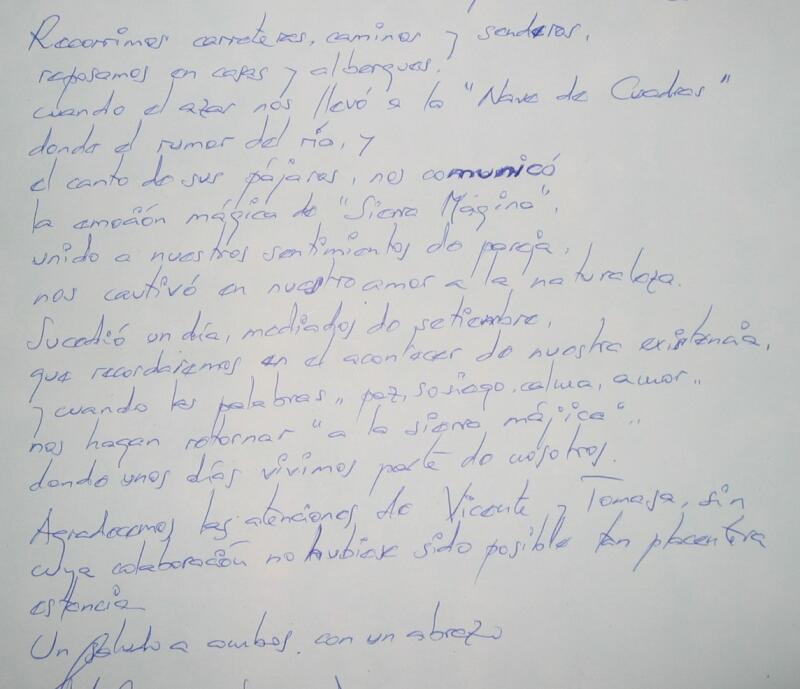 Recorrimos carreteras, caminos y senderos,
reposamos en casas y albergues,
cuando el azar nos llevó a la "Nave de Cuadras"
donde el rumor del río, y
el canto de sus pájaros, nos comunicó
la emoción mágica de "Sierra Mágina",
unido a nuestros sentimientos de pareja,
nos cautivó en nuestro amor a la naturaleza.
Sucedió un día, mediados de setiembre,
que recordaremos en el acontecer de nuestra existencia,
y cuando las palabras "paz, sosiego, calma, amor"
nos hagan retornar "a la sierra májica"..
donde unos días vivimos parte de nosotros.
Agradecemos las atenciones de Vicente y Tomasa, sin
cuya colaboración no hubiese sido posible tan placentera
estancia
Un saludo a ambos, con un abrazo